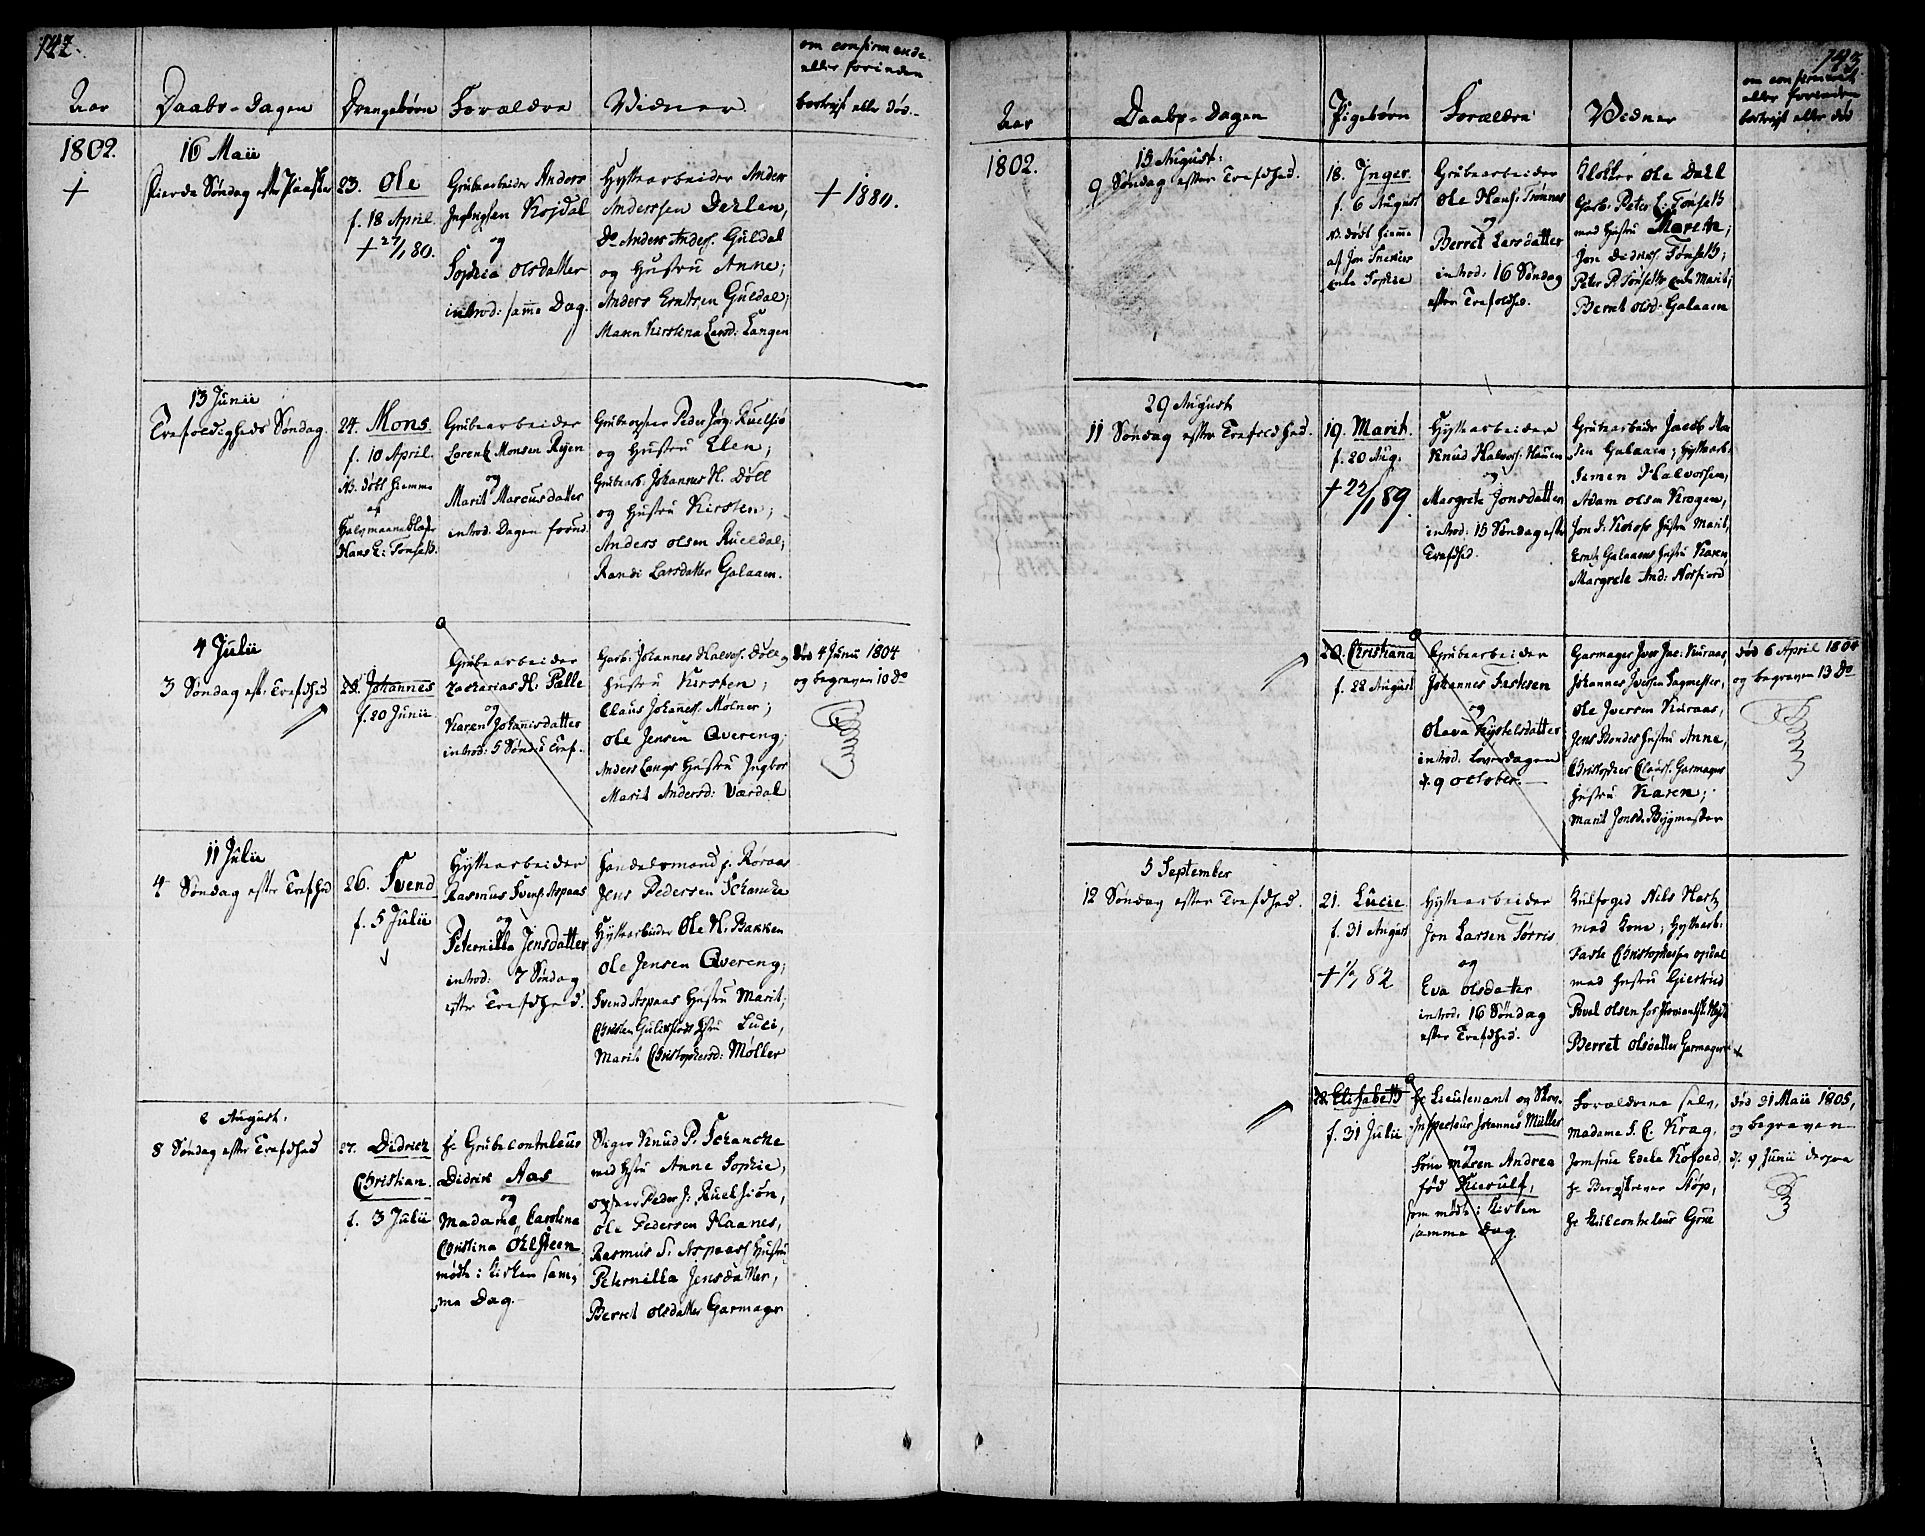 142.
Aar
Daabs-Dagen
Drengebørn
Forældre
Vidner
om confirmerede
eller forinden
bortrejst eller død.
1802.
+
16 Maii
fierde Søndag efter Paaske
23. Ole
f. 18 April
+ 27/1 80.
Grubearbeider Anders
Kojdal
og
Sophia Olsdatter
introd: samme Dag.
Hyttearbeider Anders
Anderssen Derlen,
Do Anders Anders. Guldal
og Hustru Anne;
Anders Erntsen Guldal;
Maren Kirstina Larsd: Langen
+ 1880.
13 Junii
Trefoldigheds Søndag.
24. Mons
f. 10 April
NB. døbt hiemme
af
Hans L: Tønseth.
Grubearbeider
Lorentz Monsen Reyen
og
Marit Marcusdatter
introd. Dagen forud
Grubeopseer Peder Jørg: Ruelsiø
og Hustru Elen;
Grubearb. Johannes H. Döll
og Hustru Kirsten;
Anders Olsen Rueldal;
Randi Larsdatter Galaaen.
4 Julii
3 Søndag eft. Trefdhed
25. Johannes
f. 20 Junii
Grubearbeider
Zacharias H. Palle
og
Karen Johannisdatter
introd: 5 Sønd: e Tref.
Garb. Johannes Halvors. Döll og
Hustru Kirsten;
Claus Johaness. Molner;
Ole Jensen Qvereng;
Anders Langes Hustru Ingbor
Marit Andersd: Værdal
død 4 Junii 1804
og begraven 10 Do
11 Julii
4 Søndag efter Trefdhed
26. Svend
f. 5 Julii
Hyttearbeider
Rasmus Svends. Aspaas
og
Peternilla Jensdatter
introd: 7 Søndag
efter Trefdhed.
Handelsmand p. Røraas
Jens Pedersen Schancke
Hyttearbeider Ole H. Bakken
Ole Jensen Qvereng;
Svend Aspaas Hustru Marit;
Luci,
Marit Christophersd: Møller
8 August.
8 Søndag efter Trefdhed
27. Didrich
Christian.
f. 3 Julii
Hr Grubecontroleur
Didrik Aas
og
Madame Carolina
Christina Ohlsteen
mødte i Kirken sam-
me Dag.
Stiger Knud P. Schancke
med Hstru Anne Sophie,
Peder J. Ruelsiøn,
Ole Pedersen Haanes,
Rasmus S. Aspaas Hustru
Peternilla Jensdatter,
Berret Olsdatter Garmager
143.
Aar
Daabs-Dagen
Pigebørn
Forældre
Vidner
om confirmeret
eller forinden
bortrejst eller død
1802.
15 August:
9 Søndag efter Trefdhed.
18. Inger
f. 6 August
NB. døbt hiemme
af Jon Snekker
Enke Sophie
Grubearbeider
Ole Hans. Trønnes
og
Berret Larsdatter
introd: 16 Søndag
efter Trefoldhed.
Klokker Ole Dall
Garb. Peter L: Tønseth
med Hustru Marethe;
Jon Tønseth;
Peter P. Tønseths Enke Marit;
Bernt Olsd: Galaaen
29 August
11 Søndag efter Trefoldhed.
19. Marit.
f. 20 Aug.
+ 22/1 89.
Hyttearbeider
Knud Halvors. Hauen
og
Margrete Jonsdatter
introd: 15 Søndag efter
Trefdhed.
Grubearbeider Jacob
Galaaen; Hyttearb.
Simen Halvorsen,
Adam Olsen Krogen,
Hustru Marit,
Ernts Galaaens Hustru Karen
Margrete And: Norfiord
20. Christiana
f. 22 August
Grubearbeider
Johannes
og
Olava Kystelsdatter
introd. Løverdagen
d. 9 October.
Garmager Iver Jac: Kuraas,
Johannes Iversen Sagmester,
Ole Iversen Kuraas,
Jens Bondes Hustru Anne,
Christopher Clauss. Garmagers
Hustru Karen;
Marit Jonsd. Bygmester
død 6 April 1804
og begraven 13 Do
5 September
12 Søndag efter Trefdhed.
21. Lucie.
f. 31 August
82
Hyttearbeider
Jon Larsen Torris
og
Eva Olsdatter
introd: 16 Søndag
efter Trefdhed.
Kulfoged Nils Hartz
med Kone; Hyttearb:
Faste Christophersen Opdal
med Hustru Giertrud
Povel Olsen
Berret Olsdatter Garmager
22. Elisabeth
f. 31 Julii
Hr Lieutenant og Skov-
Inspecteur Johannes Müller
og
Frue Maren Andrea
fød Hiorulf,
som mødte i Kirken
samme Dag.
Forældrene selv,
Madame S. C. Krag,
Jomfrue Edele Kofoed,
Hr Bergskriver Støp,
Hr Kulcontroleur Grue
død 31 Maii 1805,
og begraven
d. 9 Junii derpaa